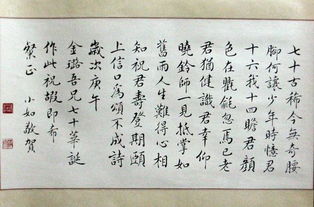 七十古稀今無奇腰
脚何讓少年時憶君
十六我十四瞻君顏
色在氍毹忽焉已老
君猶健識君幸仰
曉鈴師一見抵掌如
舊雨人生難得心相
知祝君壽登期頤
上信口為頌不成詩
歲次庚午
金璐吾兄七十華誕
作此祝嘏即希
粲正 小如敬賀